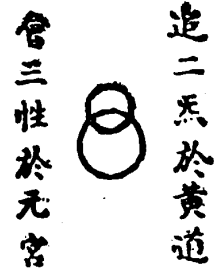 追二炁於黄道
會三性於元宮